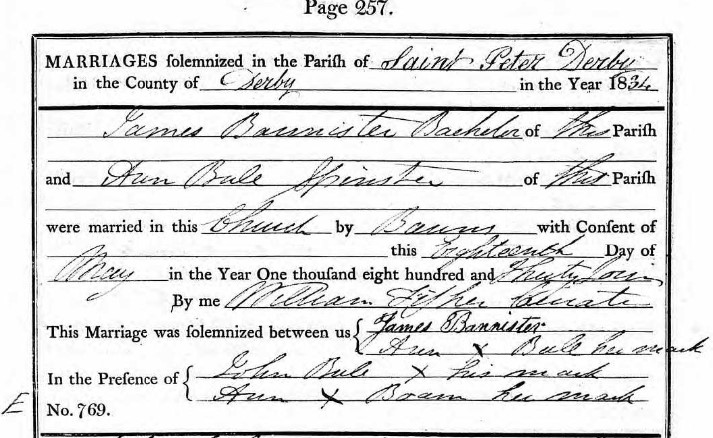 Page 257.
MARRIAGES solemnized in the Parish of Saint Peter Derby
in the County of Derby in the Year 1834
James Bannister Bachelor of this Parish
and Ann Bule Spinster of this Parish
were married in this Church by Banns with Consent of
this Eighteenth Day of
May in the Year One thousand eight hundred and Thirty four
By me William Fisher Curate
This Marriage was solemnized between us { James Bannister
Ann X Bule her mark
In the Presence of { John Bule X his mark
Ann X Boam her mark
E No. 769.